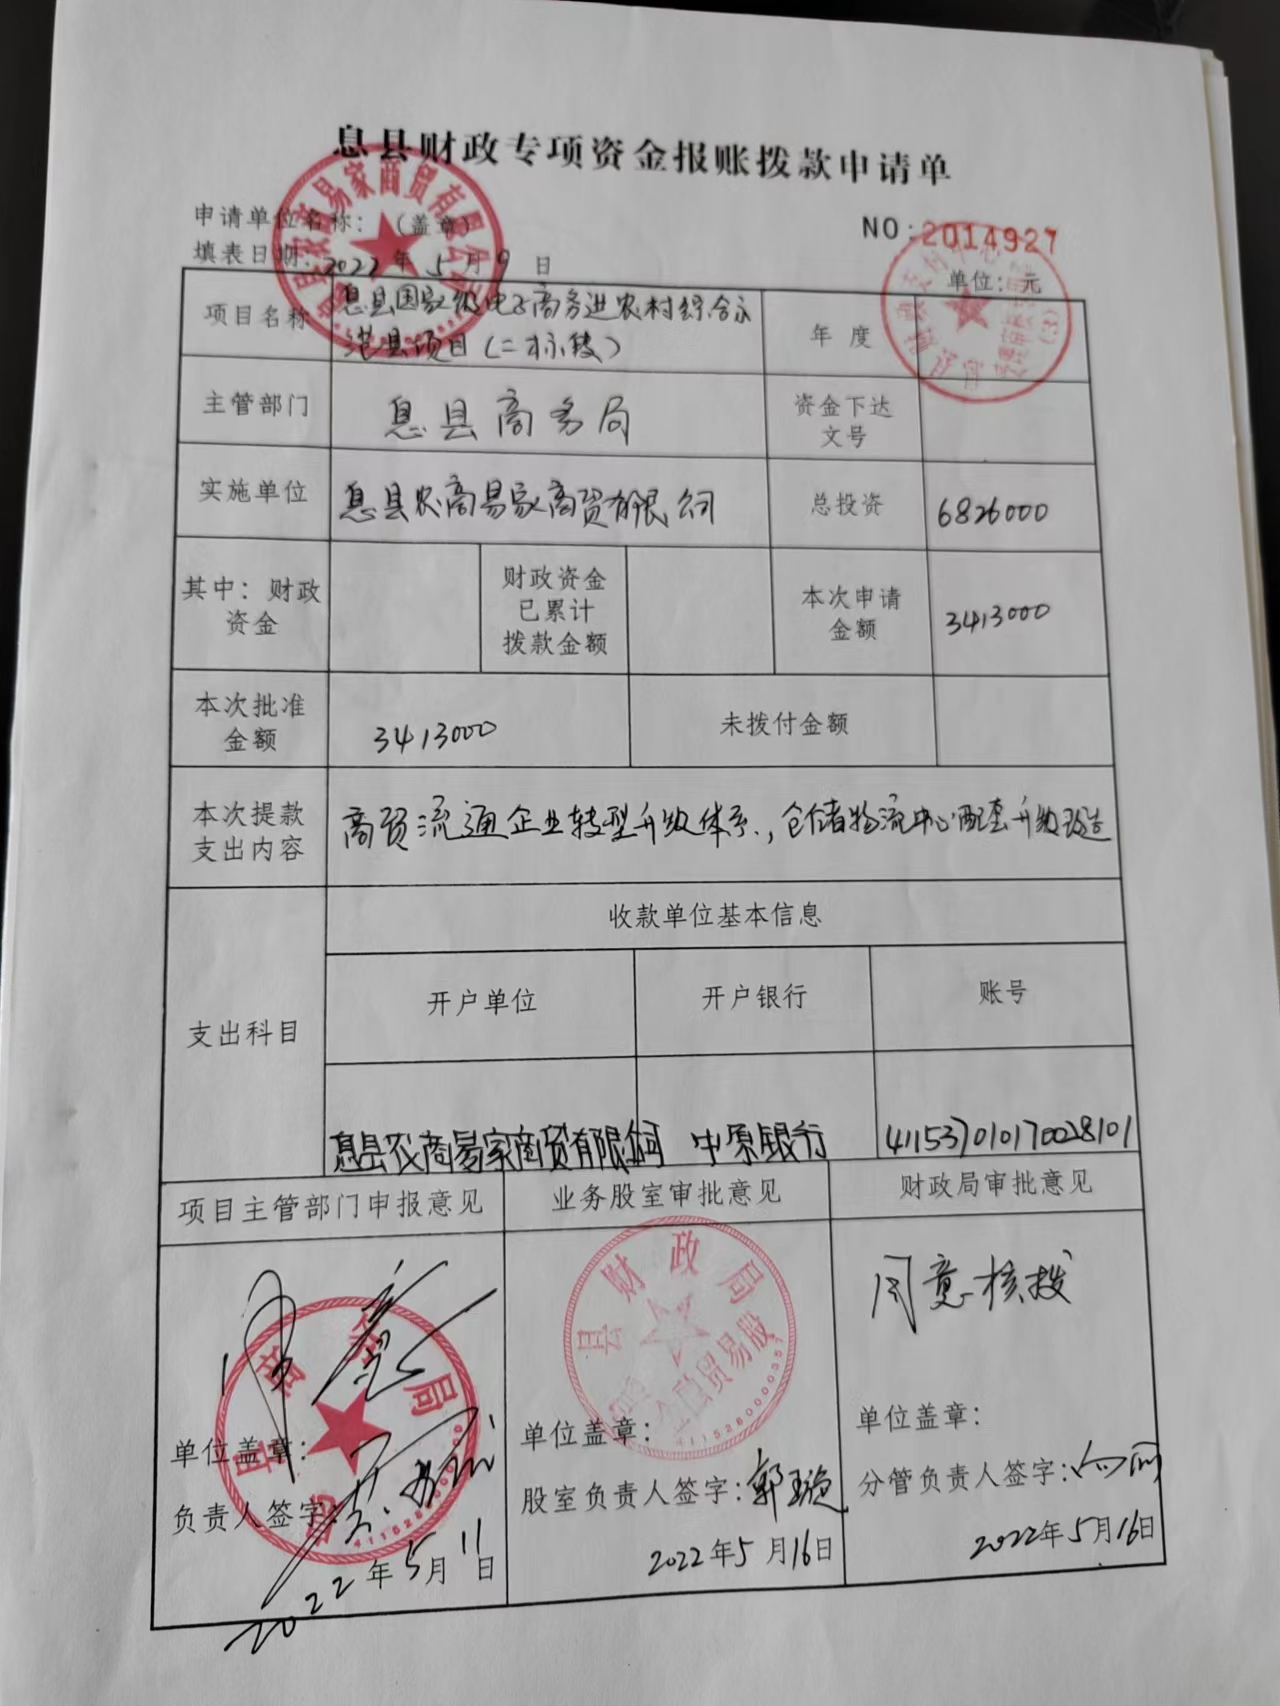 息县财政专项资金报账拨款申请单
申请单位名称：（盖章）
NO:2014927
填表日期：2022年5月9日
单位：元
项目名称
息县国家级电子商务进农村综合示
范县项目（二标段）
年度
主管部门
息县商务局
资金下达
文号
实施单位
息县农商易家商贸有限公司
总投资
6826000
其中：财政
资金
财政资金
已累计
拨款金额
本次申请
金额
3413000
本次批准
金额
3413000
未拨付金额
本次提款
支出内容
商贸流通企业转型升级体系，仓储物流中心配套升级改造
支出科目
收款单位基本信息
开户单位
开户银行
账号
息县农商易家商贸有限公司
中原银行
411537010170028101
项目主管部门申报意见
业务股室审批意见
财政局审批意见
同意
县财政局
金融贸易股
4115280000357
同意核拨
息县商务局
单位盖章：
负责人签字：
2022年5月11日
单位盖章：
股室负责人签字：郭璇
2022年5月16日
单位盖章：
分管负责人签字：
2022年5月16日